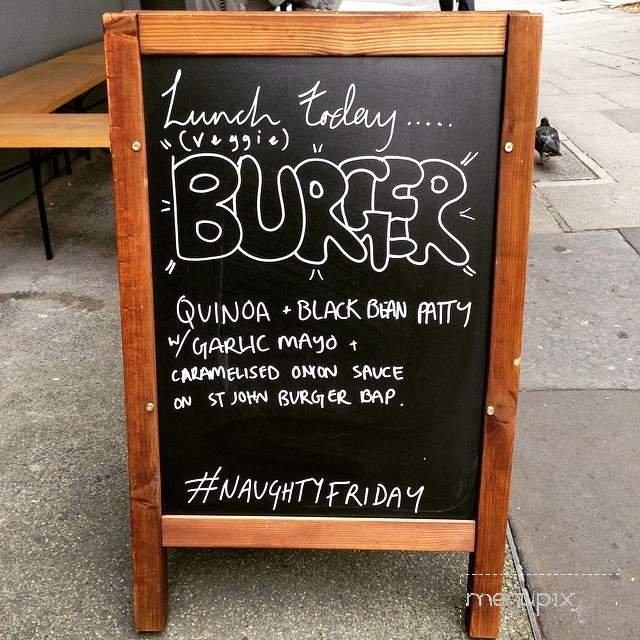 Lunch today.....
(veggie)
BURGER
QUINOA + BLACK BEAN PATTY
W/ GARLIC MAYO +
CARAMELISED ONION SAUCE
ON ST JOHN BURGER BAP.
#NAUGHTYFRIDAY
menupix